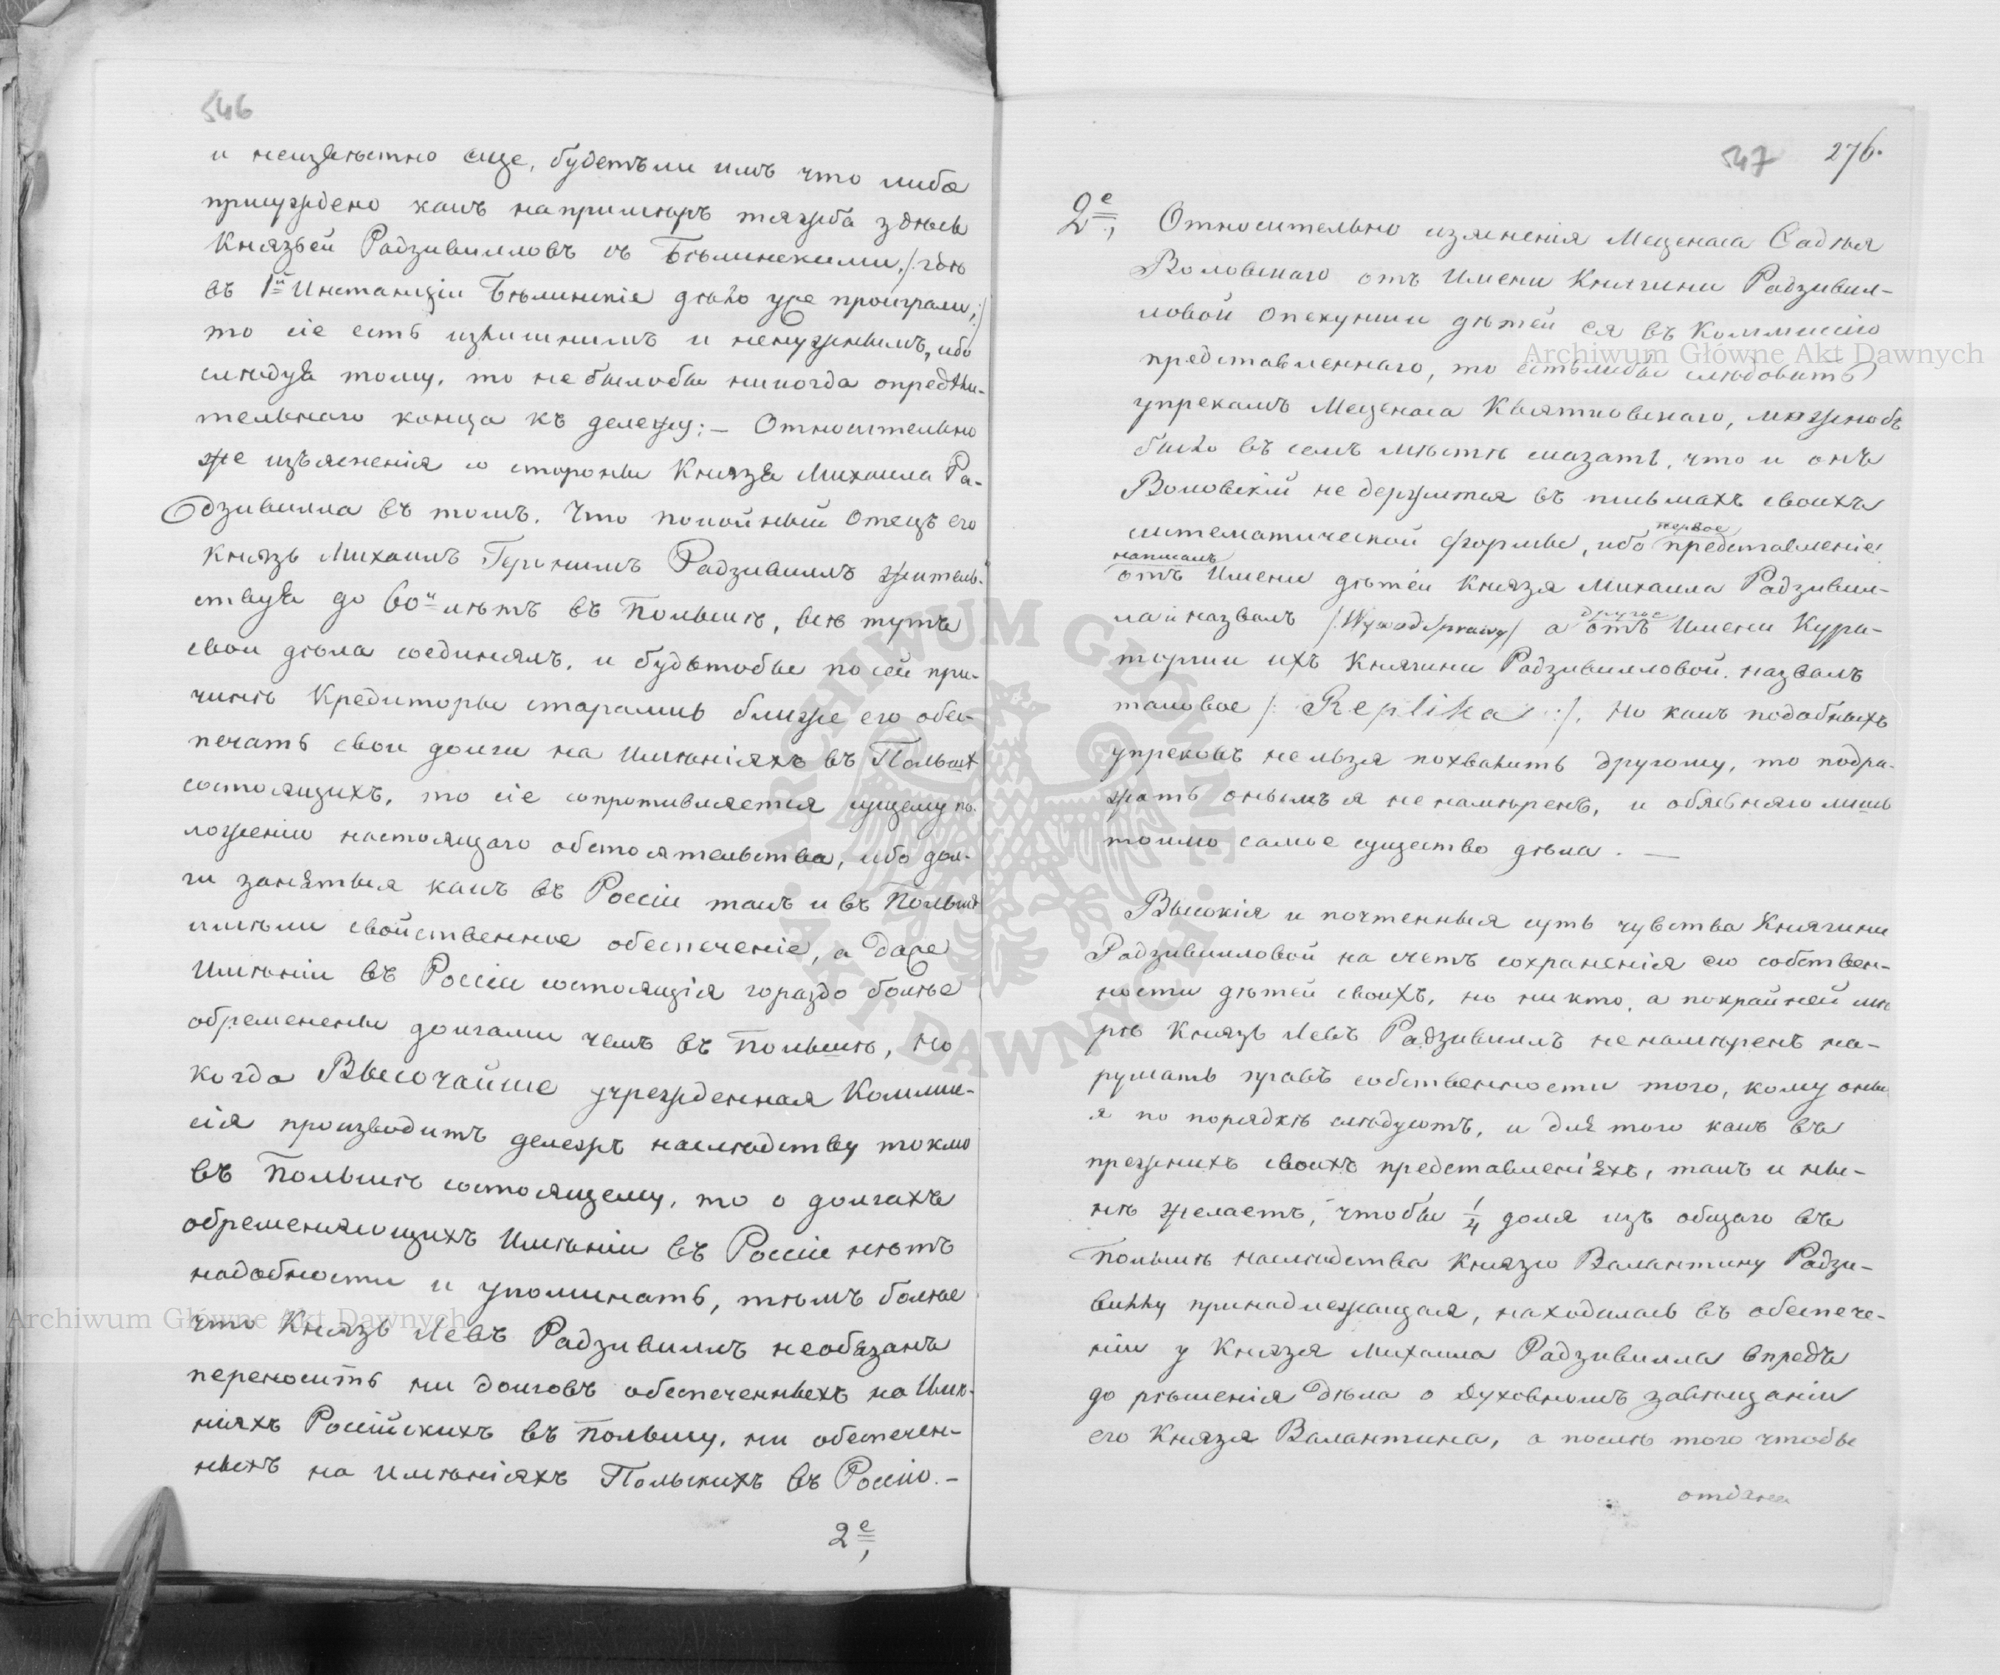 546
и неизвѣстно еще, будетъ ли имъ что либо
присуждено какъ напримѣръ тяжба здѣсь
Князьей Радзивилловъ съ Бѣлинскими, /:гдѣ
въ 1й Инстанціи Бѣлинскіе дѣло уже проиграли,:/
то сіе есть излишнимъ и ненужнымъ, ибо
слѣдуя тому, то не было бы никогда опредѣли-
тельнаго конца къ дележу; — Относительно
же изъясненія со стороны Князя Михаила Ра-
дзивилла въ томъ. Что покойный Отецъ его
Князь Михаилъ Геронимъ Радзивиллъ жительъ-
ствуя до 60и лѣтъ въ Польшѣ, всѣ тутъ
свои дѣла соединялъ, и будьтобы по сей при-
чинѣ Кредиторы старались ближе его обез-
печать свои долги на Имѣніяхъ въ Польшѣ
состоящихъ, то сіе сопротивляется сущему по-
ложенію настоящаго обстоятельства, ибо дол-
ги занятыя какъ въ Россіи такъ и въ Польшѣ
имѣли свойственное обеспеченіе, а даже
Имѣніи въ Россіи состоящія гораздо болѣе
обременены долгами чемъ въ Польшѣ, но
когда Высочайше учрежденная Коммис-
сія производитъ дележъ наслѣдству токмо
въ Польшѣ состоящему, то о долгахъ
обременяющихъ Имѣніи въ Россіи нѣтъ
надобности и упоминать, тѣмъ болѣе
что Князь Левъ Радзивиллъ необязанъ
переносить ни долговъ обеспеченныхъ на Имѣ-
ніяхъ Россійскихъ въ Польшу, ни обеспечен-
ныхъ на Имѣніяхъ Польскихъ въ Россію. —
2е,
547 276.
2е, Относительно изяснения Меценаса Садѣя
Воловскаго отъ Имени Княгини Радзивил-
ловой Опекунши дѣтей ея въ Коммиссію
представленнаго, то естьлибы слѣдовать
упрекамъ Меценаса Квятковскаго, можнобъ
было въ семъ мѣстѣ сказать, что и онъ
Воловскій не держится въ письмахъ своихъ
систематической формы, ибо первое представленіе
написалъ
отъ Имени дѣтей Князя Михаила Радзивил-
ла и назвалъ /:Wywod Sprawy:/ а другое отъ Имени Кура-
торши ихъ Княгини Радзивилловой, назвалъ
таковое /: Replika :/. Но какъ подобныхъ
упрековъ нельзя похвалить другому, то подра-
жать онымъ я ненамѣренъ, и объясняю лишь
токмо самое существо дѣла. —
Высокія и почтенныя суть чувства Княгини
Радзивилловой на счетъ сохраненія ею собствен-
ности дѣтей своихъ, но никто, а покрайней мѣ
рѣ Князь Левъ Радзивиллъ ненамѣренъ на-
рушать правъ собственности того, кому оны
я по порядкѣ слѣдуютъ, и для того какъ въ
прежнихъ своихъ представленіяхъ, такъ и ны-
нѣ желаетъ, чтобы 1/4 доля изъ общаго въ
Польшѣ наслѣдства Князю Валантину Радзи-
виллу принадлежащая, находилась въ обеспече-
ніи у Князя Михаила Радзивилла впредь
до рѣшенія дѣла о духовномъ завѣщаніи
его Князя Валантина, а послѣ того чтобы
Archiwum Główne Akt Dawnych
Archiwum Główne Akt Dawnych
ARCHIWUM GŁÓWNE
AKT DAWNYCH